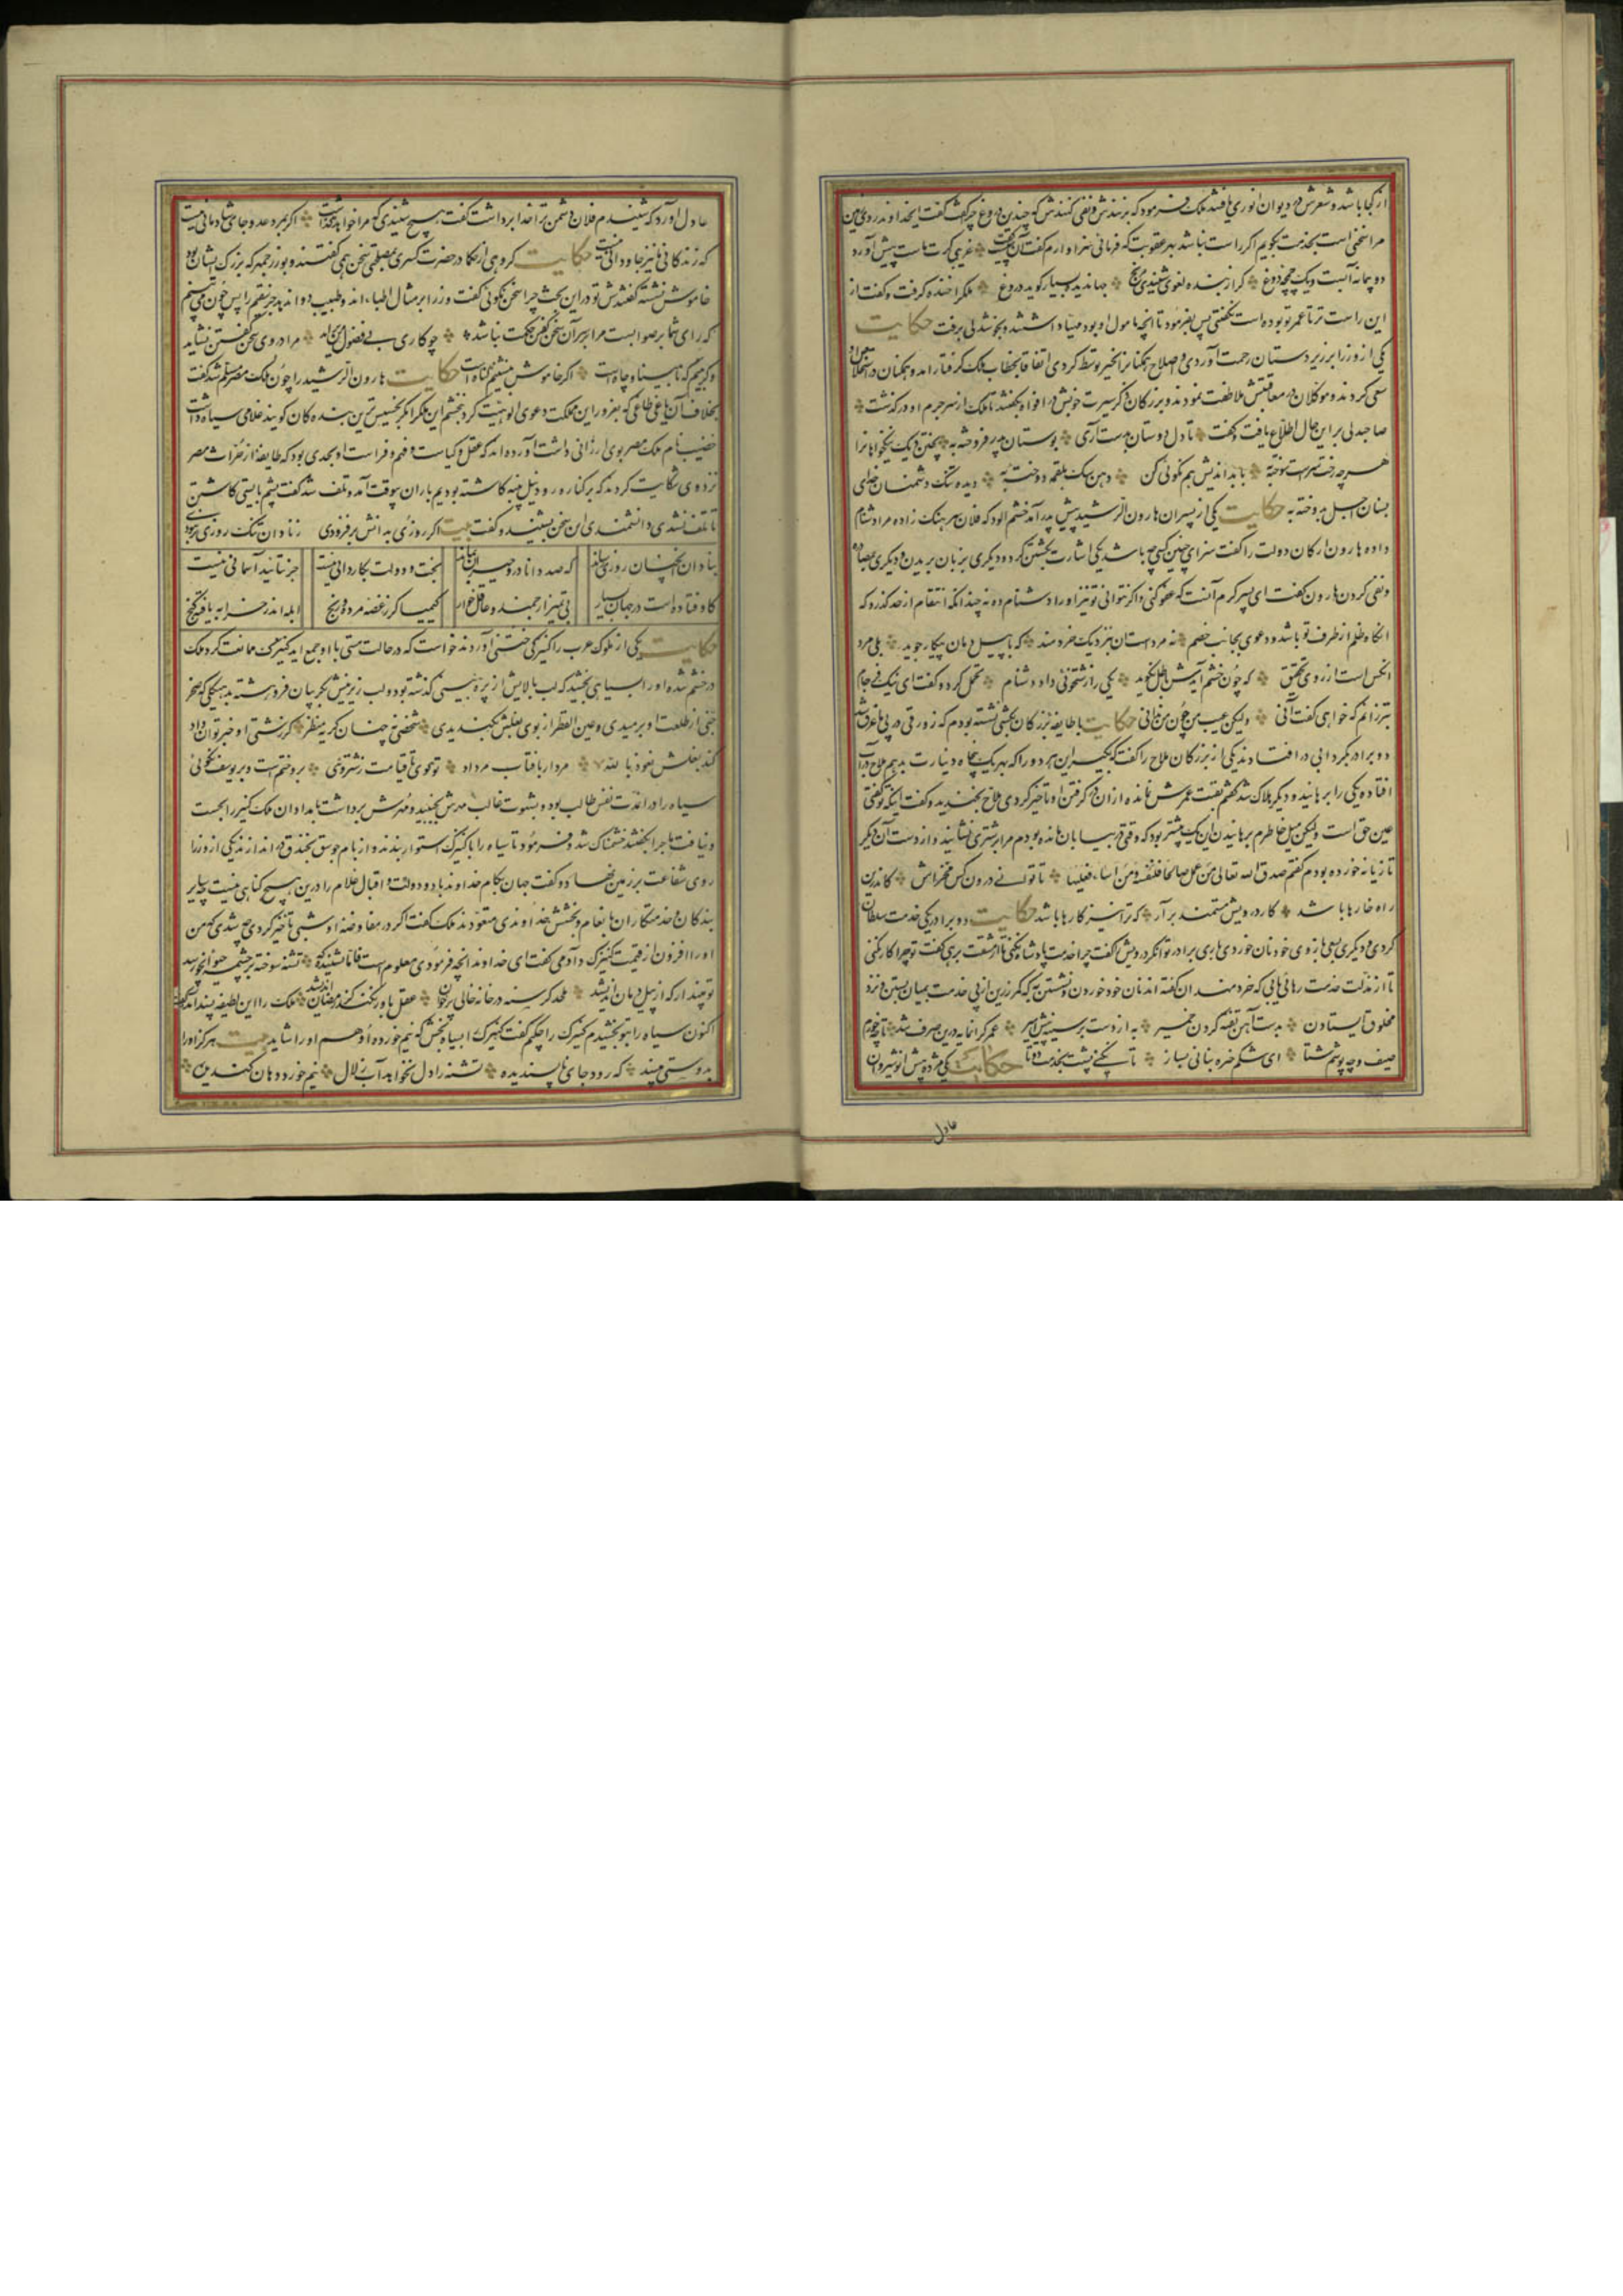 از کجا باشد و شعرش در دیوان انوری یافتند ملک فرمود که بزنندش و نفی کنندش که چندین دروغ چرا گفت گفت ایخداوند روی زمین
مرا سخنی است بخدمت بگویم اگر راست نباشد بهر عقوبت که فرمائی سزاوارم گفت آن چیست غریبی گرت ماست پیش آورد
دو پیمانه آبست و یک چمچه دوغ گر از بنده لغوی شنیدی مرنج جهاندیده بسیار گوید دروغ ملک را خنده گرفت و گفت از
این راست تر تا عمر تو بوده است نگفتی پس بفرمود تا آنچه مامول او بود مهیا داشتند و بخوشدلی برفت حکایت
یکی از وزرا بر زیردستان رحمت آوردی و صلاح همگنان را بخیر توسط کردی اتفاقا بخطاب ملک گرفتار امد و همگنان در استخلاص او
سعی کردند و موکلان در معاقبتش ملاطفت نمودند و بزرگان ذکر سیرت خوبش در افواه بگفتند تا ملک از سر جرم او درگذشت
صاحبدلی بر این حال اطلاع یافت و گفت تا دل دوستان بدست آری بوستان پدر فروخته به پختن دیگ نیکخواهانرا
هر چه رخت سراست سوخته به با بداندیش هم نکوئی کن دهن سگ بلقمه دوخته به دیده سگ دشمنان خدای
بسنان اجل بدوخته به حکایت یکی از پسران هارون الرشید پیش پدر آمد خشم الود که فلان سرهنگ زاده مرا دشنام
داده هارون ارکان دولت را گفت سزای چنین کسی چه باشد یکی اشارت بکشتن کرد و دیگری بزبان بریدن و دیگری بمصادره
و نفی کردن هارون گفت ای پسر کرم آنست که عفو کنی و اگر نتوانی تو نیز او را دشنام ده نه چندانکه انتقام از حد گذرد که
انگاه ظلم از طرف تو باشد و دعوی بجانب خصم نه مرد است ان بنزدیک خردمند که با پیل دمان پیکار جوید بلی مرد
انکس است از روی تحقیق که چون خشم آیدش باطل نگوید یکی را زشتخوئی داد دشنام تحمل کرد و گفت ای نیک فرجام
بتر زانم که خواهی گفت آنی ولیکن عیب من چون من ندانی حکایت با طایفه بزرگان بکشتی نشسته بودم که زورقی در پی ما غرق شد
دو برادر بگردابی در افتادند یکی از بزرگان ملاح را گفت که بگیر این هر دو را که بهر یک پنجاه دینارت بدهم ملاح در آب
افتاد و یکی را برهانید و دیگر هلاک شد گفتم بقیت عمرش نمانده از ان در گرفتن او تاخیر کردی ملاح بخندید و گفت اینکه تو گفتی
عین حق است ولیکن میل خاطرم برهانیدن این یک بیشتر بود که وقتی در بیابان مانده بودم مرا بر شتری نشانید و از دست آن دیگر
تازیانه خورده بودم گفتم صدق الله تعالی من عمل صالحا فلنفسه و من اساء فعلیها تا توانی درون کس مخراش کاندرین
راه خارها باشد کار درویش مستمند بر آر که ترا نیز کارها باشد حکایت دو برادر یکی خدمت سلطان
کردی و دیگری بسعی بازوی خود نان خوردی باری برادر توانگر درویش را گفت چرا خدمت پادشاه نکنی تا از مشقت برهی گفت تو چرا کار نکنی
تا از مذلت خدمت رهائی یابی که خردمندان گفته اند نان خود خوردن و نشستن به که کمر زرین از پی خدمت بمیان بستن و نزد
مخلوق ایستادن بدست آهن تفته کردن خمیر به از دست بر سینه پیش امیر عمر گرانمایه درین صرف شد تا چه خورم
صیف و چه پوشم شتا ای شکم خیره بنانی بساز تا نکنی پشت بخدمت دوتا حکایت یکی مژده پیش انوشیروان
عادل
عادل آورد که شنیدم فلان دشمن ترا خدا برداشت گفت هیچ شنیدی که مرا خواهد گذاشت اگر بمرد عدو جای شادمانی نیست
که زندگانی ما نیز جاودانی نیست حکایت گروهی از حکما در حضرت کسری بمصلحتی سخن همی گفتند و بوزرجمهر که بزرگ ایشان بود
خاموش نشسته گفتندش تو در این بحث چرا سخن نگوئی گفت وزرا بر مثال اطباء اند و طبیب دوا ندهد جز بسقیم را پس چون می بینم
که رای شما بر صوابست مرا بر سر آن سخن گفتن حکمت نباشد چو کاری بی فضول من بر آید مرا در وی سخن گفتن نشاید
و گر بینم که نابینا و چاه است اگر خاموش بنشینم گناه است حکایت هارون الرشید را چون ملک مصر مسلم شد گفت
بخلاف آن یاغی طاغی که بغرور این مملکت دعوی الوهیت کرد نبخشم این ملک را مگر بخسیس ترین بنده گان گویند غلامی سیاه داشت
خضیب نام ملک مصر بوی ارزانی داشت آورده اند که عقل و کیاست و فهم و فراست او بحدی بود که طایفه از حراث مصر
نزد وی شکایت کردند که بر کناره رود نیل پنبه کاشته بودیم باران بیوقت آمد و تلف شد گفت پشم بایستی کاشتن
تا تلف نشدی دانشمندی این سخن بشنید و گفت بیت اگر روزی بدانش بر فزودی ز نادان تنگ روزی تر نبودی
بنادان انچنان روزی رساند که صد دانا در و حیران بماند بخت و دولت بکاردانی نیست جز بتائید آسمانی نیست
کاوفتاده است در جهان بسیار بی تمیز ارجمند و عاقل خوار کیمیاگر ز غصه مرده و رنج ابله اندر خرابه یافته گنج
حکایت یکی از ملوک عرب را کنیزکی ختنی آوردند خواست که در حالت مستی با او جمع اید کنیزک ممانعت کرد ملک
در خشم شد و او را بسیاهی بخشید که لب بالایش از پره بینی گذشته بود و لب زیرینش بگریبان فروهشته هیکلی که صخر
جنی از طلعت او برمیدی و عین القطر از بوی بغلش بگندیدی شخصی نه چنان کریه منظر کز زشتی او خبر توان داد
گنده بغلش نعوذ بالله مردار بآفتاب مرداد تو گوئی تا قیامت زشتروئی برو ختم ست و بر یوسف نکوئی
سیاه را در اندت نفس طالب بود و شهوت غالب مهرش بجنبید و مهرش برداشت بامدادان ملک کنیز را بجست
و نیافت ماجرا بگفتند خشمناک شد و فرمود تا سیاه را با کنیزک استوار ببندند و از بام جوسق بخندق در اندازند یکی از وزرا
روی شفاعت بر زمین نهاد و گفت جهان بکام خداوند باد و دولت و اقبال غلام را درین هیچ گناهی نیست چه سایر
بندگان و خدمتکاران بانعام و بخشش خداوندی متعودند ملک گفت اگر در مفاوضه او شبی تاخیر کردی چه شدی که من
او را افزون از قیمت کنیزک دادمی گفت ای خداوند انچه فرمودی معلوم است فاما نشنیدی که تشنه سوخته بر چشمه حیوان چو رسد
تو مپندار که از پیل دمان اندیشد ملحد گرسنه در خانه خالی بر خوان عقل باور نکند کز رمضان اندیشد ملک را این لطیفه پسند امد و گفت
اکنون سیاه را بتو بخشیدم کنیزک را چکنم گفت کنیزک را بسیاه بخش که نیم خورده او هم او را شاید بیت هرگز او را
بدوستی مپسند که رود جای ناپسندیده تشنه را دل نخواهد آب زلال نیم خورد دهان گندیده